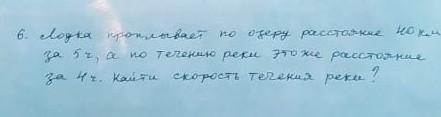 6. Лодка проплывает по озеру расстояние 40 км
за 5 ч, а по течению реки это же расстояние
за 4 ч. Найти скорость течения реки?